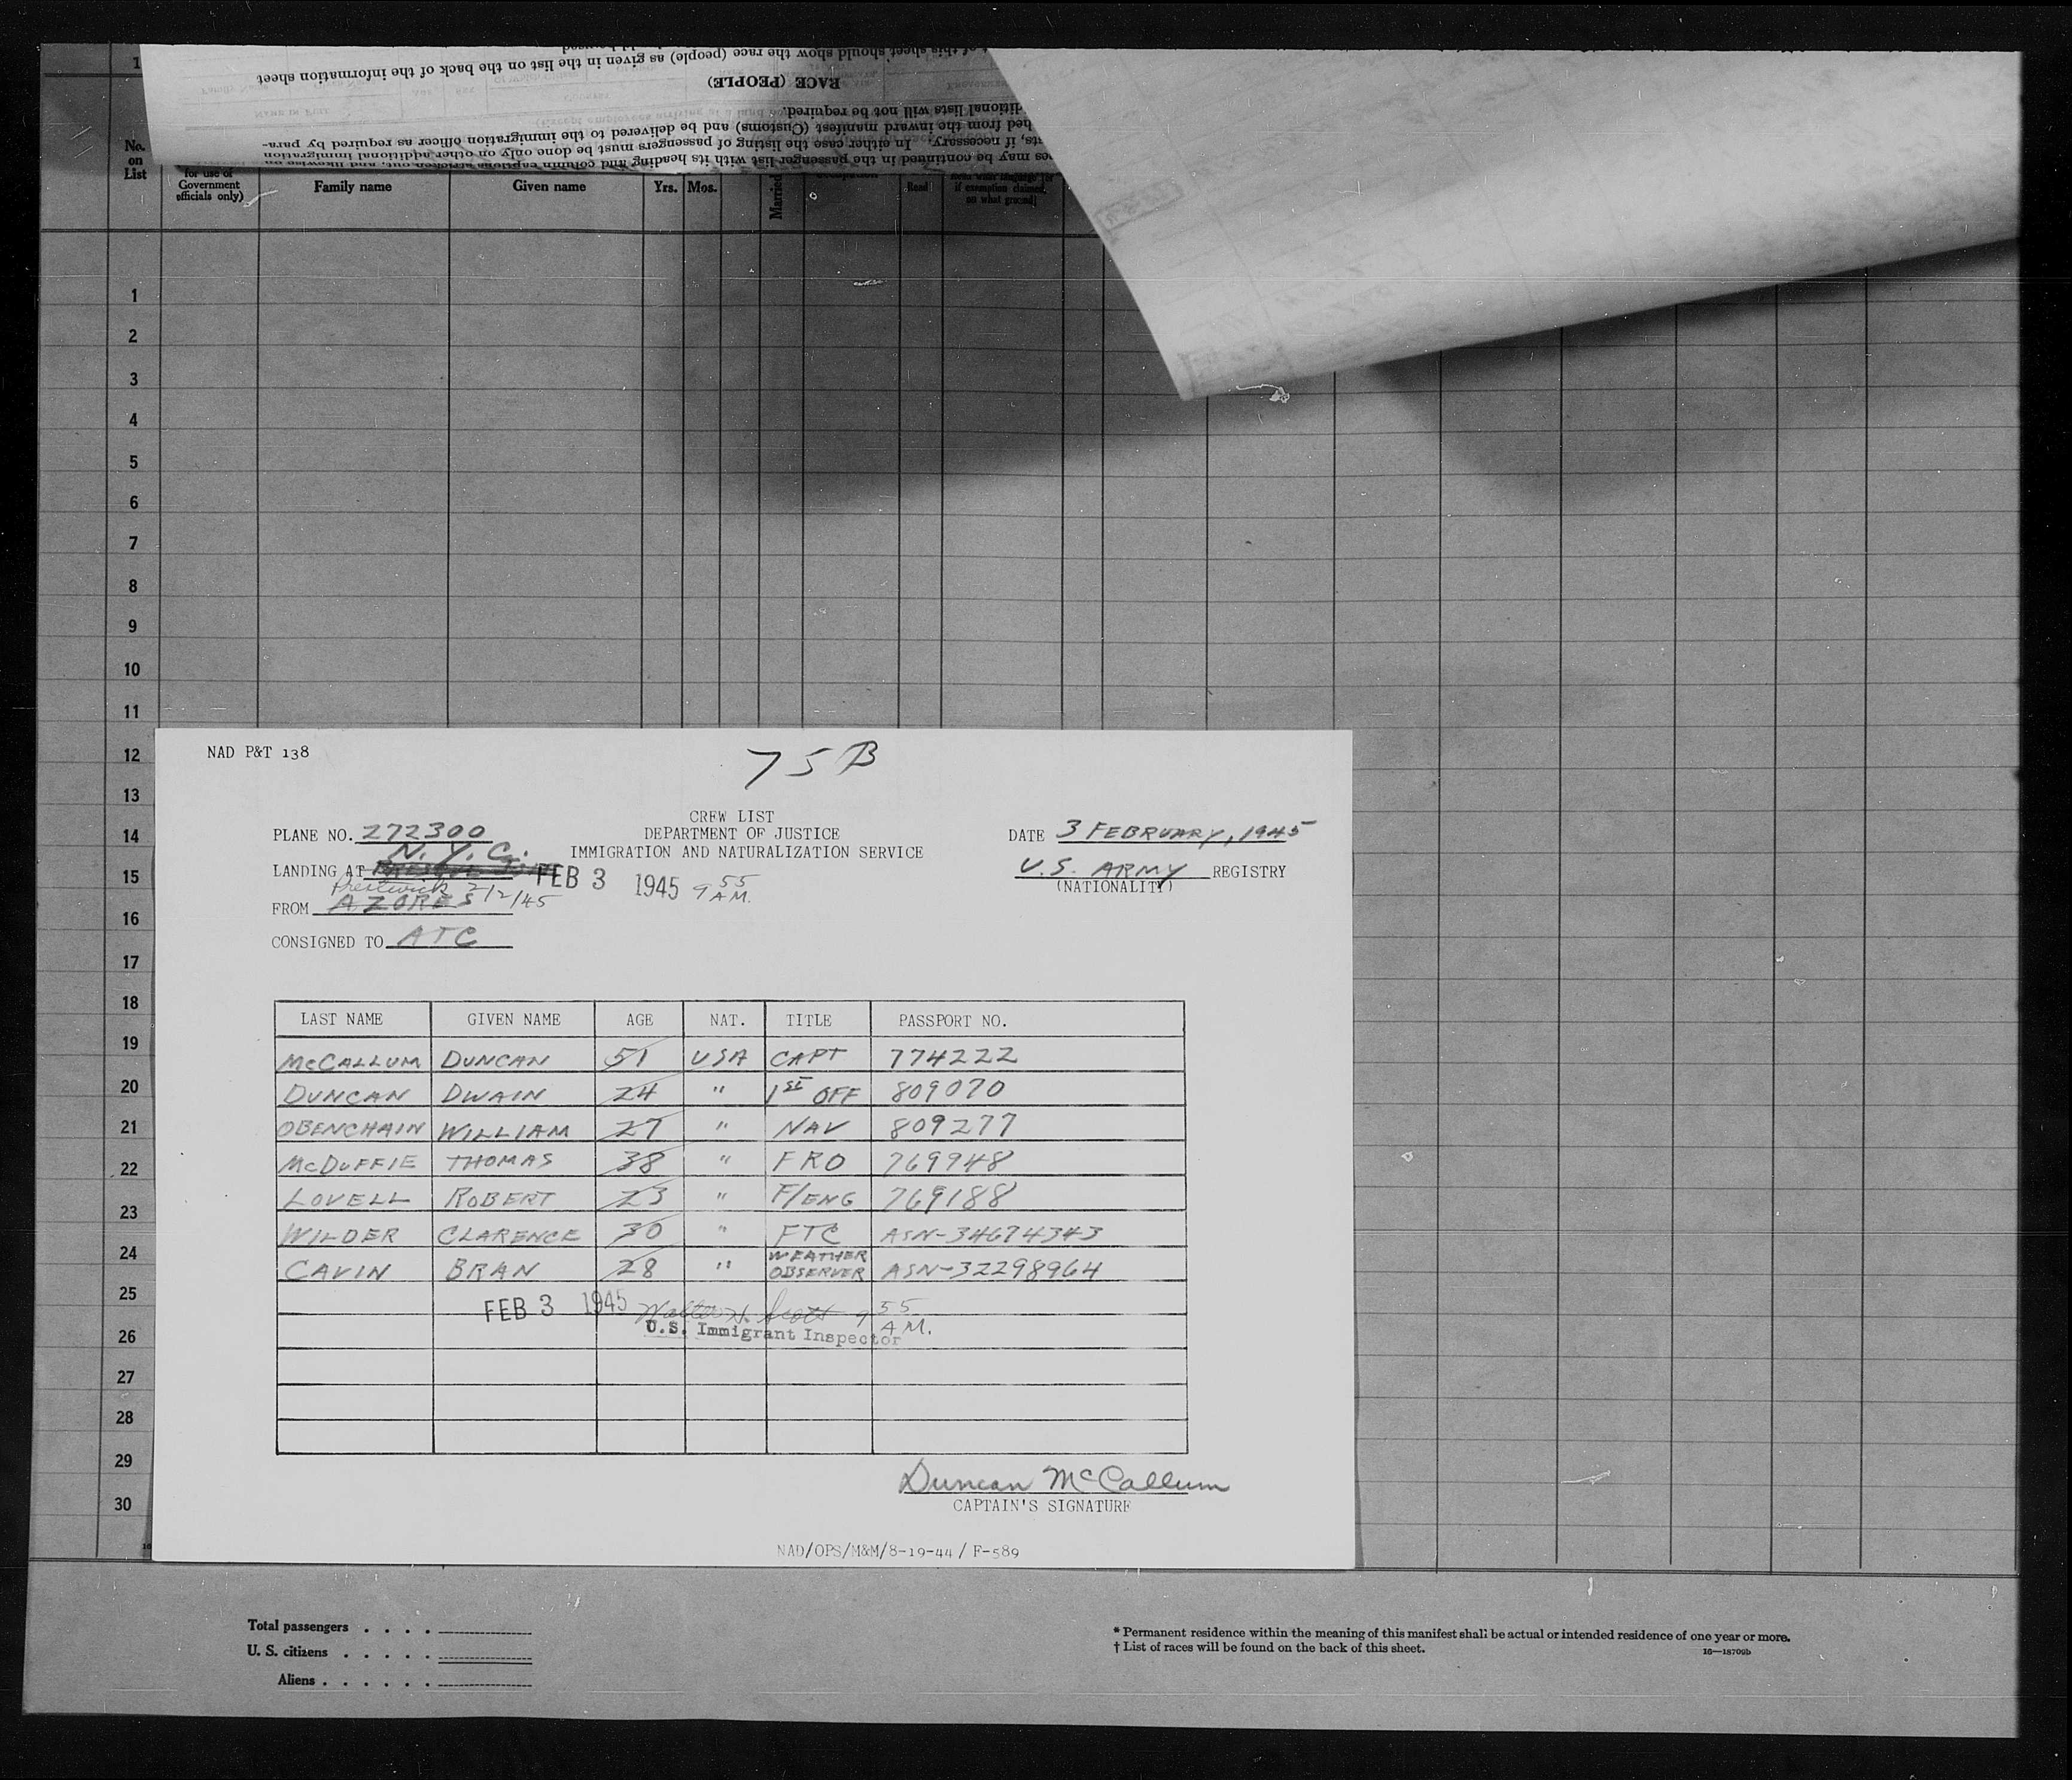 of this sheet should show the race (people) as given in the list on the back of the information sheet
RACE (PEOPLE)
ditional lists will not be required.
hed from the inward manifest (Customs) and be delivered to the immigration officer as required by para-
ts, if necessary. In either case the listing of passengers must be done only on other additional immigration
es may be continued in the passenger list with its heading and column captions stricken out, and
No.
on
List
for use of
Government
officials only)
Family name
Given name
Yrs. Mos.
Married
Read
if exemption claimed,
on what ground
1
2
3
4
5
6
7
8
9
10
11
12
13
14
15
16
17
18
19
20
21
22
23
24
25
26
27
28
29
30
NAD P&T 138
75B
CREW LIST
PLANE NO. 272300
DEPARTMENT OF JUSTICE
DATE 3 FEBRUARY, 1945
N.Y.C.
IMMIGRATION AND NATURALIZATION SERVICE
LANDING AT
FEB 3 1945 9 55 A.M.
U.S. ARMY REGISTRY
(NATIONALITY)
Prestwick 2/2/45
FROM AZORES
CONSIGNED TO ATC
LAST NAME GIVEN NAME AGE NAT. TITLE PASSPORT NO.
McCALLUM DUNCAN 51 USA CAPT 774222
DUNCAN DWAIN 24 " 1ST OFF 809070
OBENCHAIN WILLIAM 27 " NAV 809277
McDUFFIE THOMAS 38 " FRO 769948
LOVELL ROBERT 23 " F/ENG 769188
WILDER CLARENCE 30 " FTC ASN-34674343
CAVIN BRAN 28 " WEATHER OBSERVER ASN-32298964
FEB 3 1945 Walter H. Scott 9 55 A.M.
U.S. Immigrant Inspector
Duncan McCallum
CAPTAIN'S SIGNATURE
NAD/OPS/M&M/8-19-44/F-589
Total passengers . . . .
U. S. citizens . . . . .
Aliens . . . . . .
* Permanent residence within the meaning of this manifest shall be actual or intended residence of one year or more.
† List of races will be found on the back of this sheet.
16—18709b